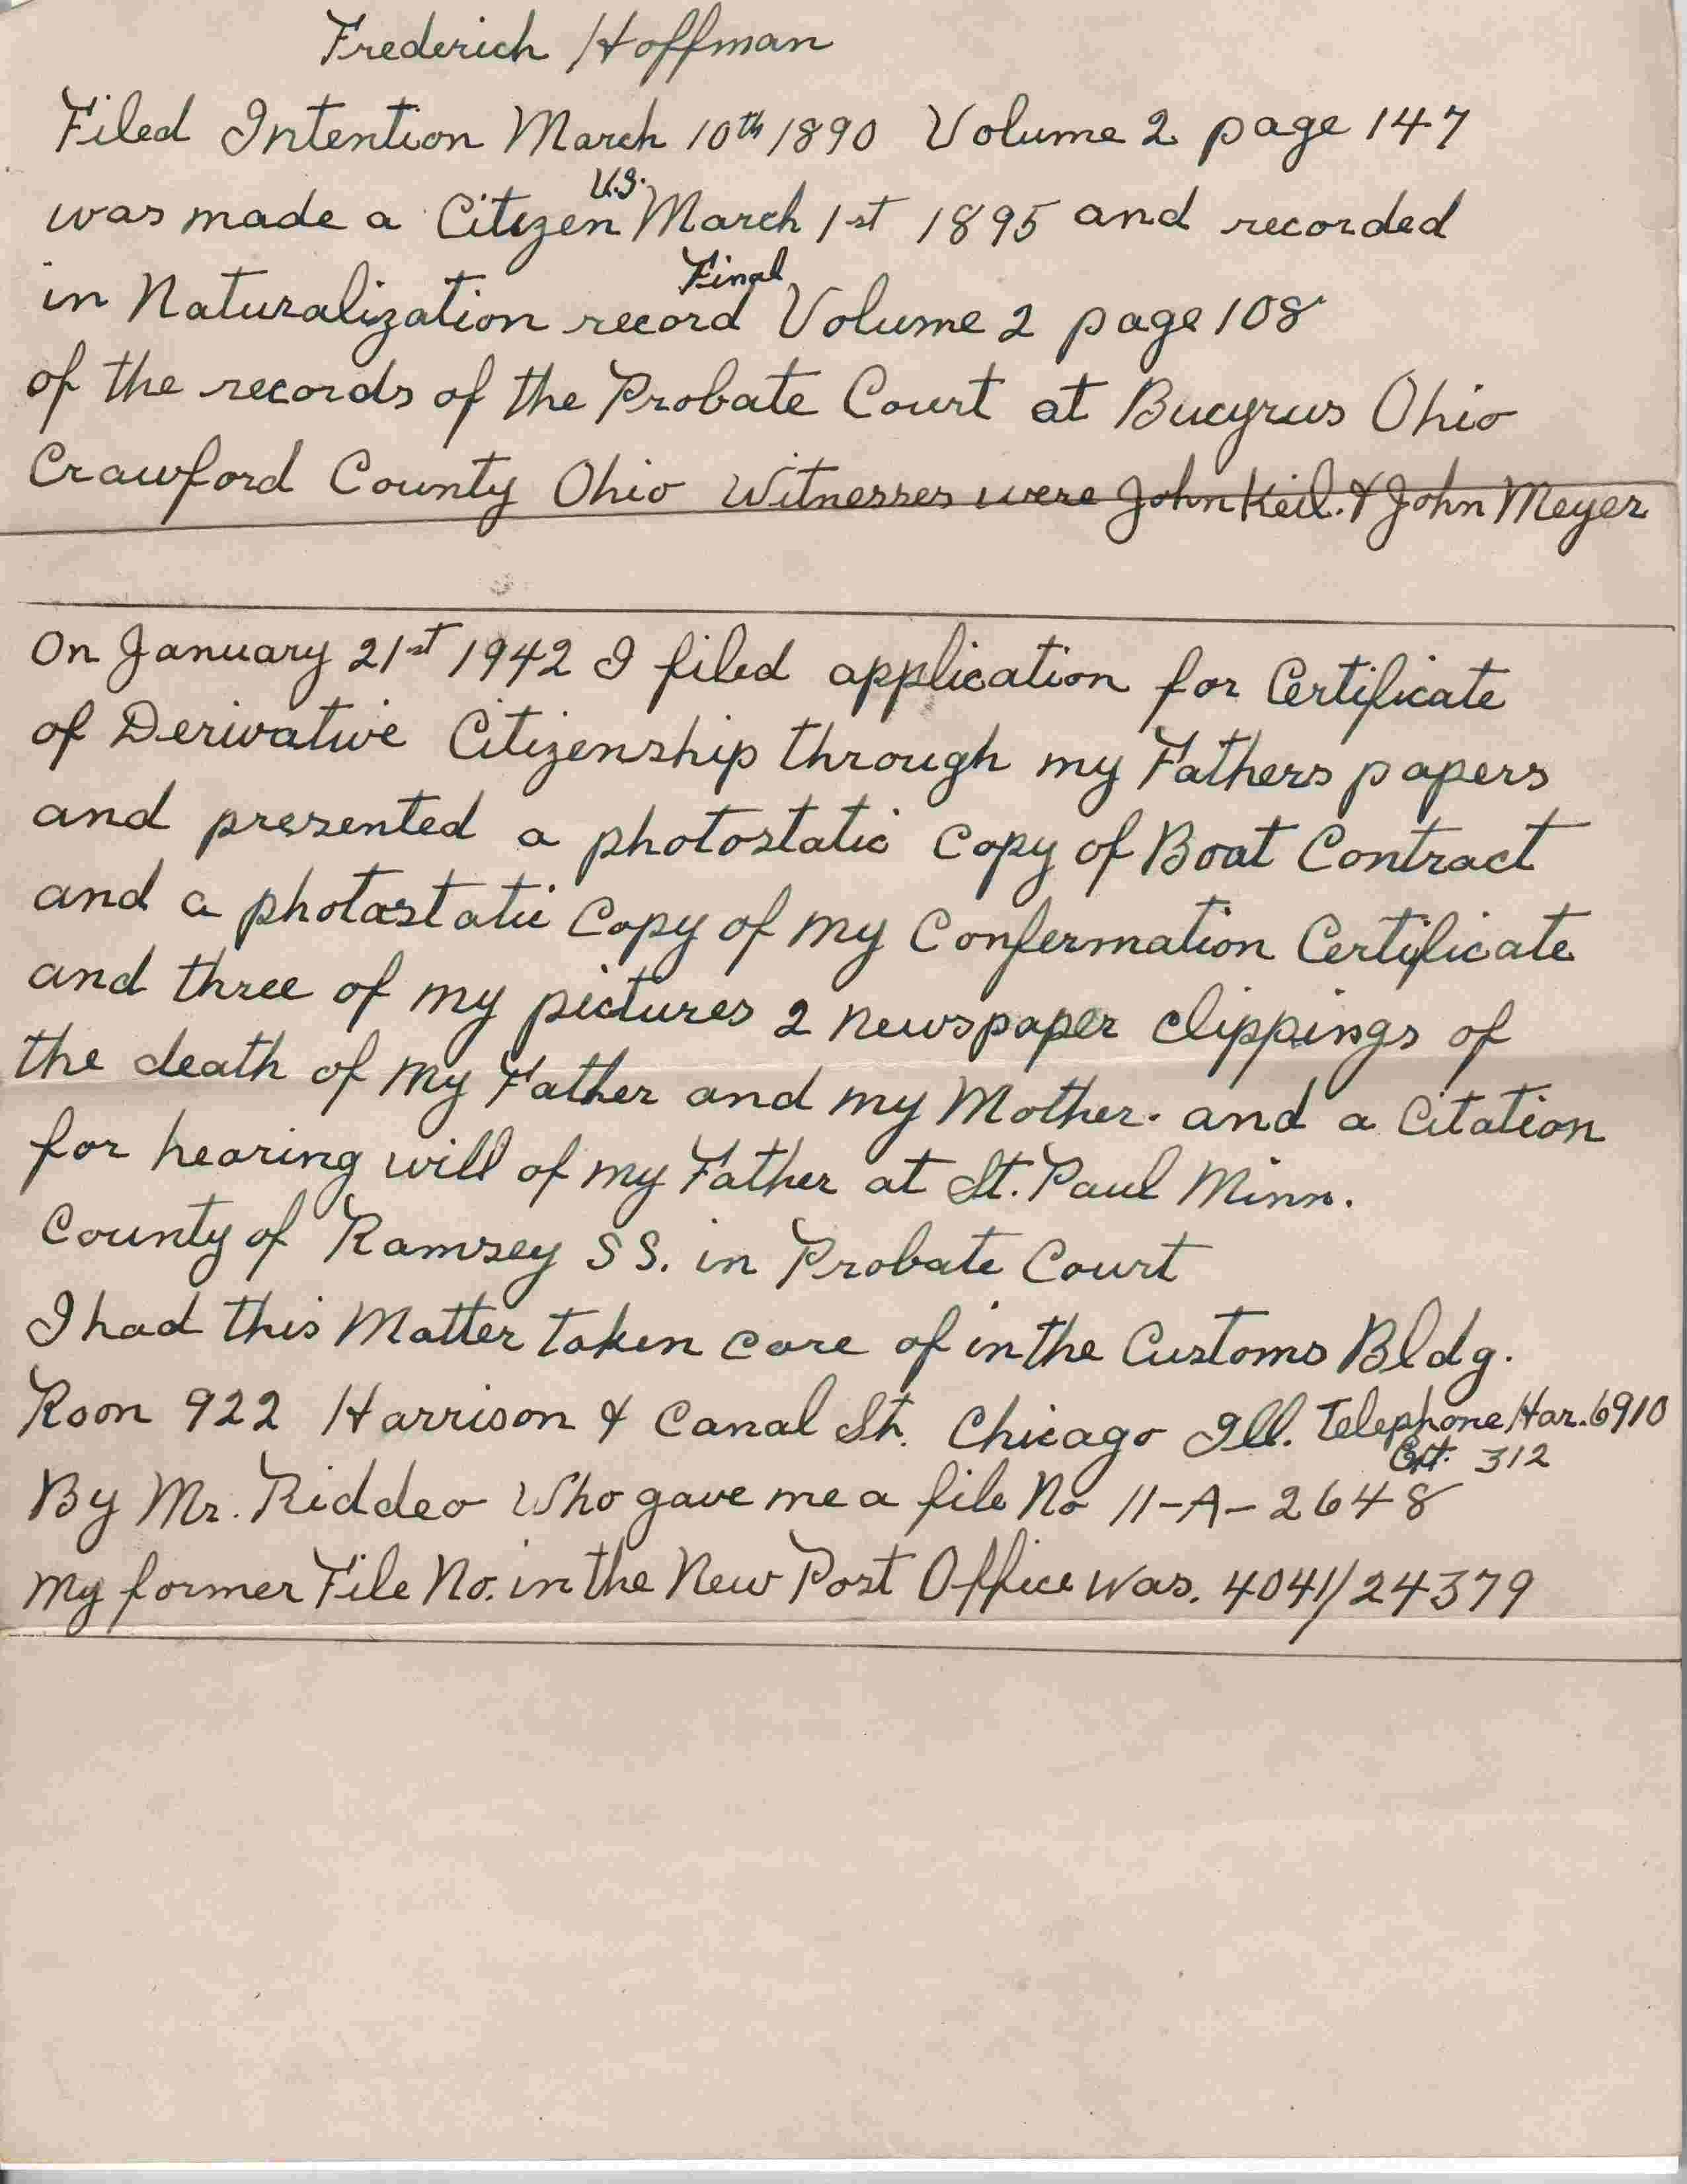 Frederich Hoffman
Filed Intention March 10th 1890 Volume 2 page 147
U.S.
was made a Citizen March 1st 1895 and recorded
Final
in Naturalization record Volume 2 page 108
of the records of the Probate Court at Bucyrus Ohio
Crawford County Ohio Witnesses were John Keil. & John Meyer
On January 21st 1942 I filed application for Certificate
of Derivative Citizenship through my Fathers papers
and presented a photostatic Copy of Boat Contract
and a photastatic Copy of my Confermation Certificate
and three of my pictures 2 newspaper clippings of
the death of my Father and my Mother. and a Citation
for hearing will of my Father at St. Paul Minn.
County of Ramsey SS. in Probate Court
I had this Matter taken care of in the Customs Bldg.
Roon 922 Harrison & Canal St. Chicago Ill. Telephone Har. 6910
Ext. 312
By Mr. Riddeo Who gave me a file No 11-A-2648
my former File No. in the New Post Office was. 4041/24379